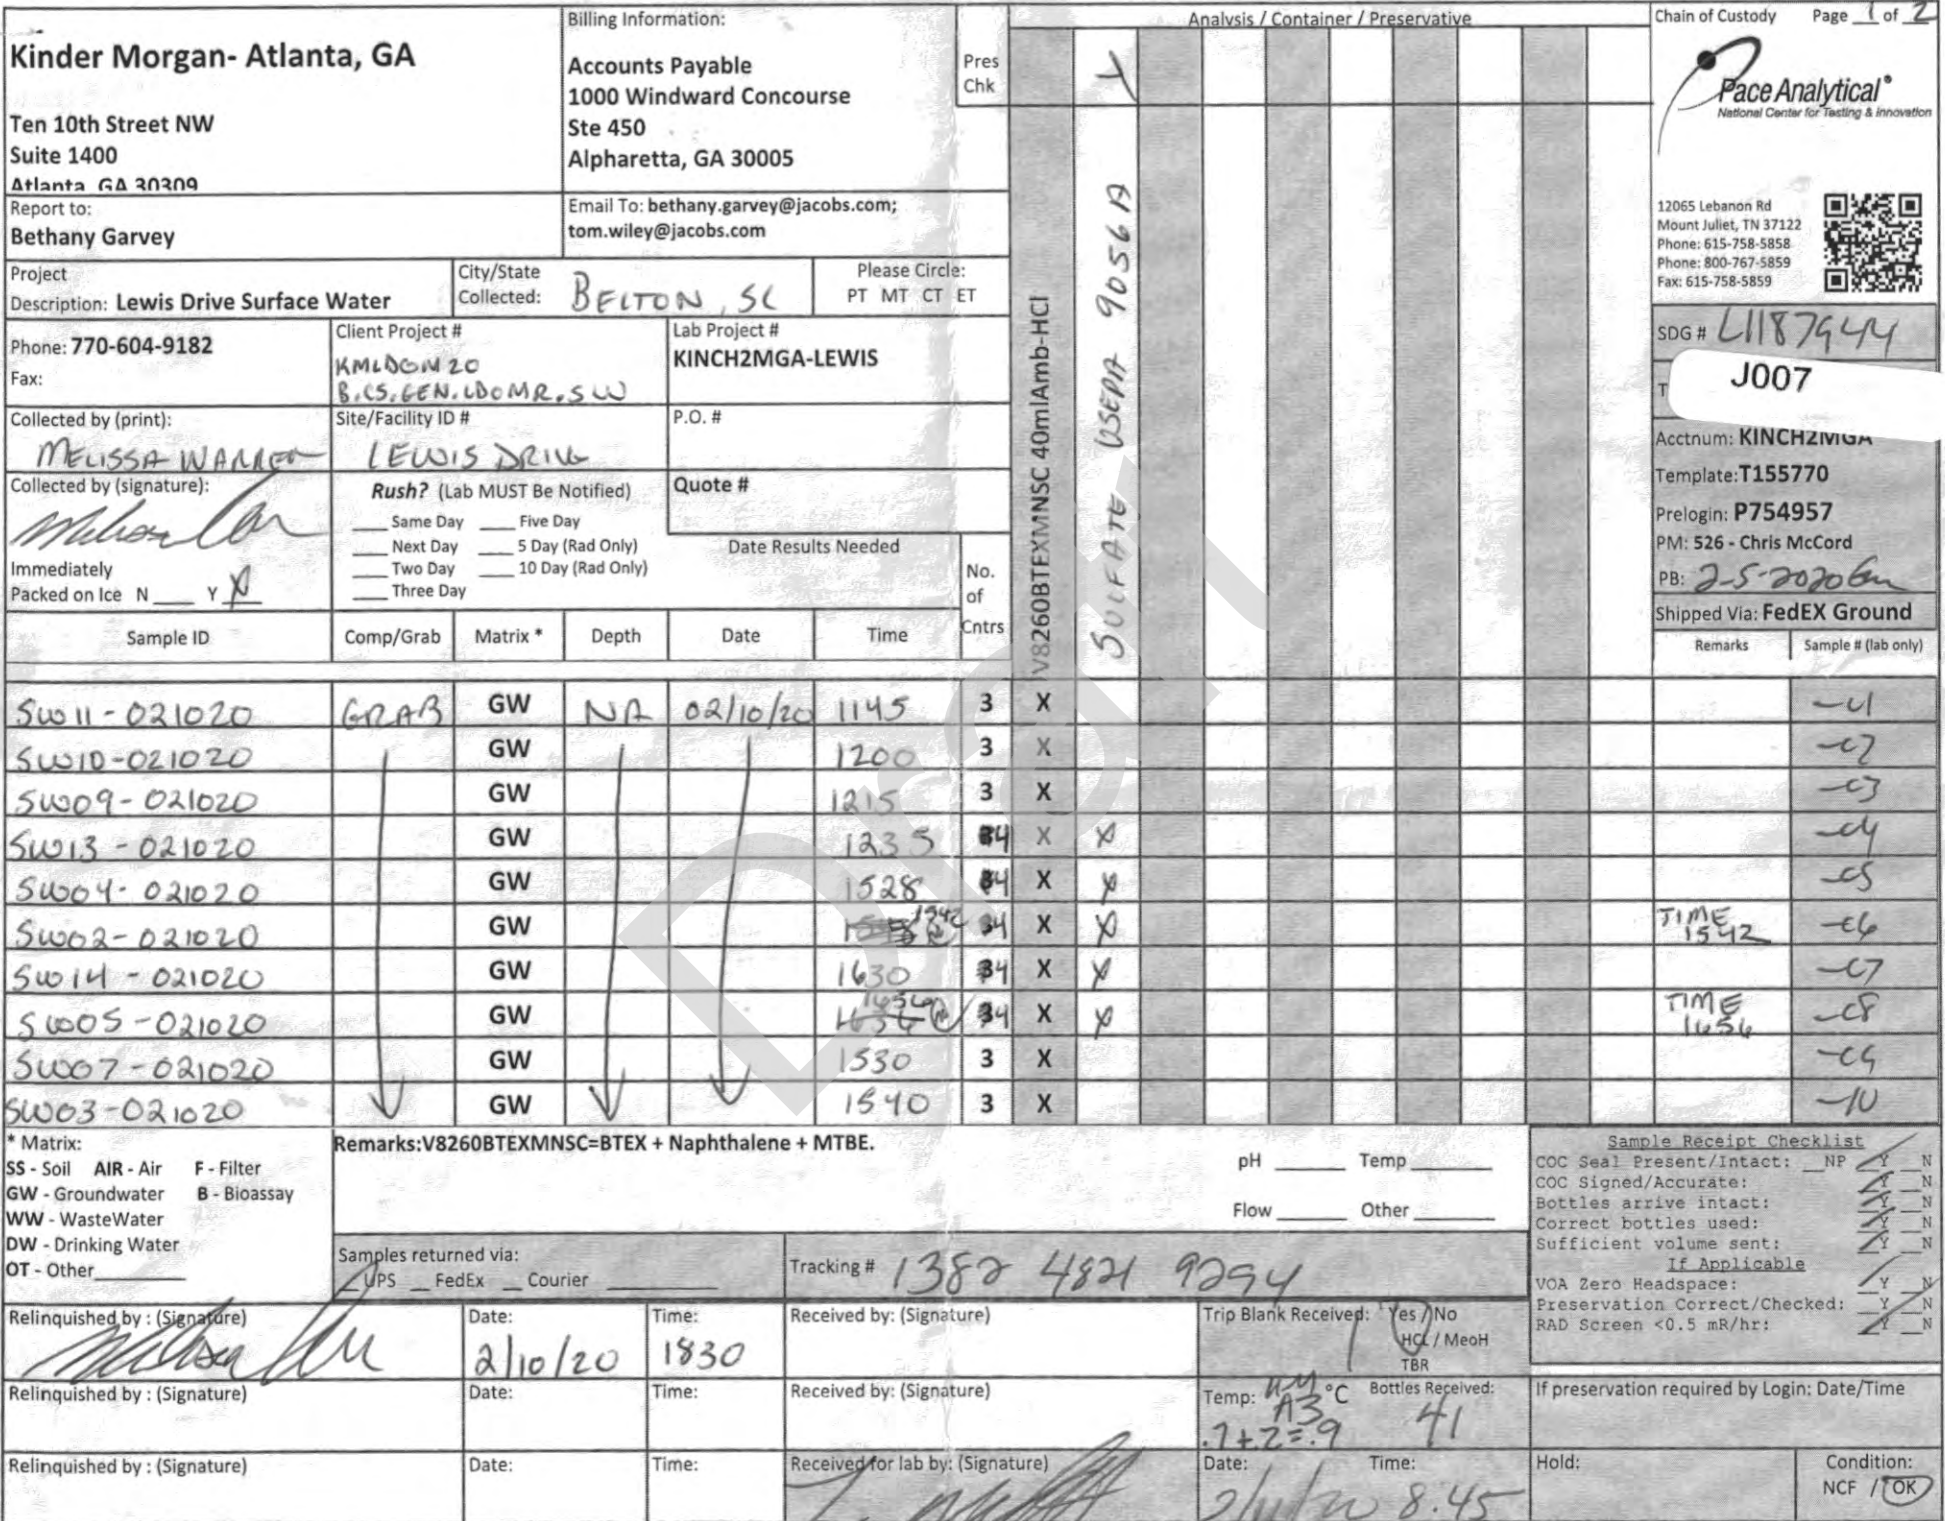 Kinder Morgan- Atlanta, GA
Ten 10th Street NW
Suite 1400
Atlanta, GA 30309
Billing Information:
Accounts Payable
1000 Windward Concourse
Ste 450
Alpharetta, GA 30005
Pres
Chk
Analysis / Container / Preservative
Chain of Custody Page 1 of 2
Pace Analytical®
National Center for Testing & Innovation
12065 Lebanon Rd
Mount Juliet, TN 37122
Phone: 615-758-5858
Phone: 800-767-5859
Fax: 615-758-5859
Report to:
Bethany Garvey
Email To: bethany.garvey@jacobs.com;
tom.wiley@jacobs.com
Project
Description: Lewis Drive Surface Water
City/State
Collected: BELTON, SC
Please Circle:
PT MT CT ET
Phone: 770-604-9182
Fax:
Client Project #
KMLDOM20
B.CS.GEN.LDOMR.SW
Lab Project #
KINCH2MGA-LEWIS
Collected by (print):
MELISSA WARREN
Site/Facility ID #
LEWIS DRIVE
P.O. #
Collected by (signature):
Rush? (Lab MUST Be Notified)
___ Same Day ___ Five Day
___ Next Day ___ 5 Day (Rad Only)
___ Two Day ___ 10 Day (Rad Only)
___ Three Day
Quote #
Date Results Needed
Immediately
Packed on Ice N ___ Y X
No.
of
Cntrs
V8260BTEXMNSC 40mlAmb-HCl
SULFATE USEPA 9056A
Y
SDG # L1187944
T
J007
Acctnum: KINCH2MGA
Template: T155770
Prelogin: P754957
PM: 526 - Chris McCord
PB: 2-5-2020
Shipped Via: FedEX Ground
Sample ID Comp/Grab Matrix * Depth Date Time Remarks Sample # (lab only)
SW11-021020 GRAB GW NA 02/10/20 1145 3 X -01
SW10-021020 GW 1200 3 X -02
SW09-021020 GW 1215 3 X -03
SW13-021020 GW 1235 4 X X -04
SW04-021020 GW 1528 4 X X -05
SW02-021020 GW 1542 4 X X TIME 1542 -06
SW14-021020 GW 1630 4 X X -07
SW05-021020 GW 1656 4 X X TIME 1656 -08
SW07-021020 GW 1530 3 X -09
SW03-021020 GW 1540 3 X -10
Draft
* Matrix:
SS - Soil AIR - Air F - Filter
GW - Groundwater B - Bioassay
WW - WasteWater
DW - Drinking Water
OT - Other
Remarks:V8260BTEXMNSC=BTEX + Naphthalene + MTBE.
pH ___ Temp ___
Flow ___ Other ___
Samples returned via:
UPS ___ FedEx ___ Courier ___
Tracking # 1382 4821 9294
Sample Receipt Checklist
COC Seal Present/Intact: __NP Y __N
COC Signed/Accurate: Y __N
Bottles arrive intact: Y __N
Correct bottles used: Y __N
Sufficient volume sent: Y __N
If Applicable
VOA Zero Headspace: Y __N
Preservation Correct/Checked: __Y __N
RAD Screen <0.5 mR/hr: Y __N
Relinquished by : (Signature)
Date:
2/10/20
Time:
1830
Received by: (Signature)
Trip Blank Received: Yes / No
HCL / MeoH
TBR
1
Relinquished by : (Signature)
Date:
Time:
Received by: (Signature)
Temp: A3 °C
.7+.2=.9
Bottles Received:
41
If preservation required by Login: Date/Time
Relinquished by : (Signature)
Date:
Time:
Received for lab by: (Signature)
Date:
2/11/20
Time:
8:45
Hold:
Condition:
NCF / OK